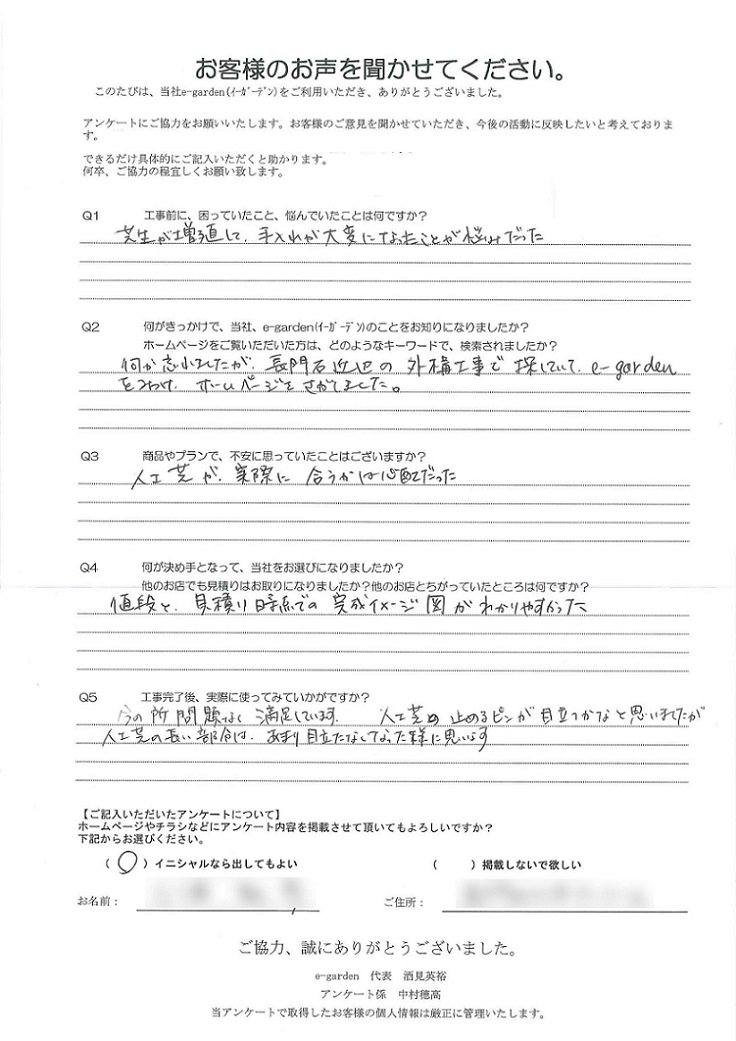 お客様のお声を聞かせてください。
このたびは、当社e-garden(ｲｰｶﾞｰﾃﾞﾝ)をご利用いただき、ありがとうございました。
アンケートにご協力をお願いいたします。お客様のご意見を聞かせていただき、今後の活動に反映したいと考えておりま
す。
できるだけ具体的にご記入いただくと助かります。
何卒、ご協力の程宜しくお願い致します。
Q1 工事前に、困っていたこと、悩んでいたことは何ですか？
芝生が増殖して、手入れが大変になったことが悩みだった
Q2 何がきっかけで、当社、e-garden(ｲｰｶﾞｰﾃﾞﾝ)のことをお知りになりましたか？
ホームページをご覧いただいた方は、どのようなキーワードで、検索されましたか？
何か忘れましたが、長門石近辺の外構工事で探していて、e-garden
をみつけ、ホームページをさがしました。
Q3 商品やプランで、不安に思っていたことはございますか？
人工芝が、実際に合うかは心配だった
Q4 何が決め手となって、当社をお選びになりましたか？
他のお店でも見積りはお取りになりましたか？他のお店とちがっていたところは何ですか？
値段と、見積り時点での完成イメージ図がわかりやすかった
Q5 工事完了後、実際に使ってみていかがですか？
今の所問題なく満足しています。 人工芝の止めるピンが目立つかなと思いましたが
人工芝の長い部分は、あまり目立たなくなった様に思います
【ご記入いただいたアンケートについて】
ホームページやチラシなどにアンケート内容を掲載させて頂いてもよろしいですか？
下記からお選びください。
（○）イニシャルなら出してもよい （ ）掲載しないで欲しい
お名前： ご住所：
ご協力、誠にありがとうございました。
e-garden 代表 酒見英裕
アンケート係 中村穂高
当アンケートで取得したお客様の個人情報は厳正に管理いたします。